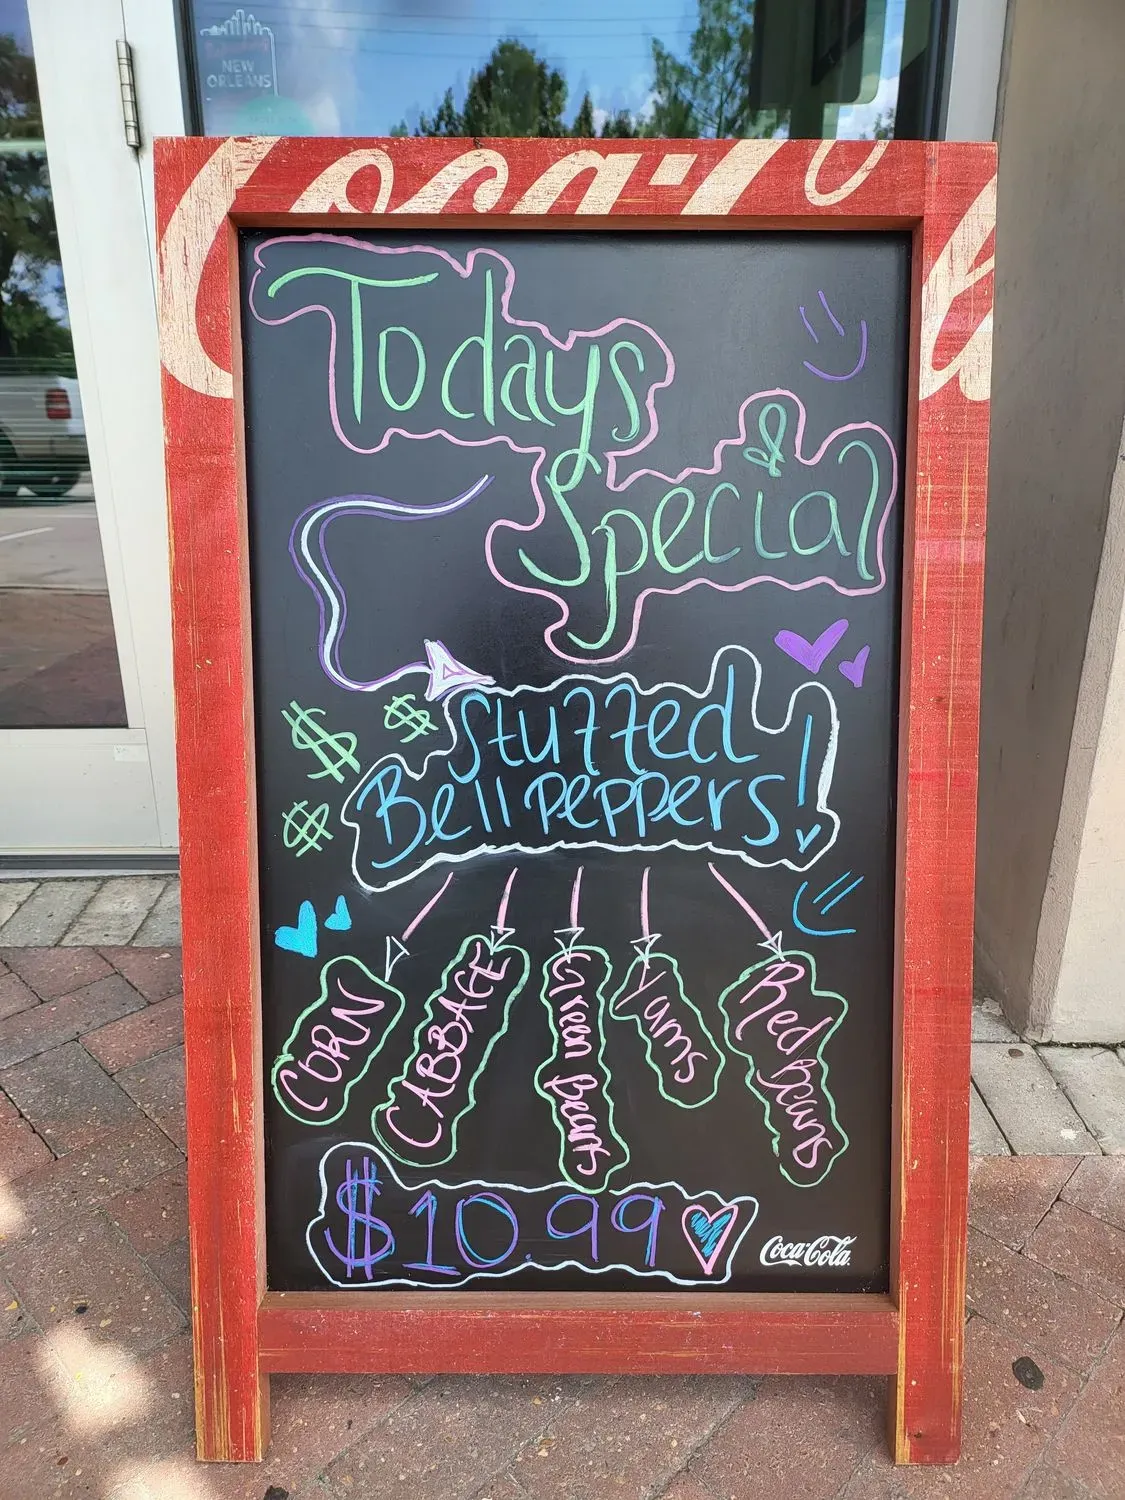 NEW
ORLEANS
Coca-Co
Todays
Special
Stuffed
Bell peppers!
CORN
CABBAGE
Green Beans
Yams
Red beans
$10.99
Coca-Cola